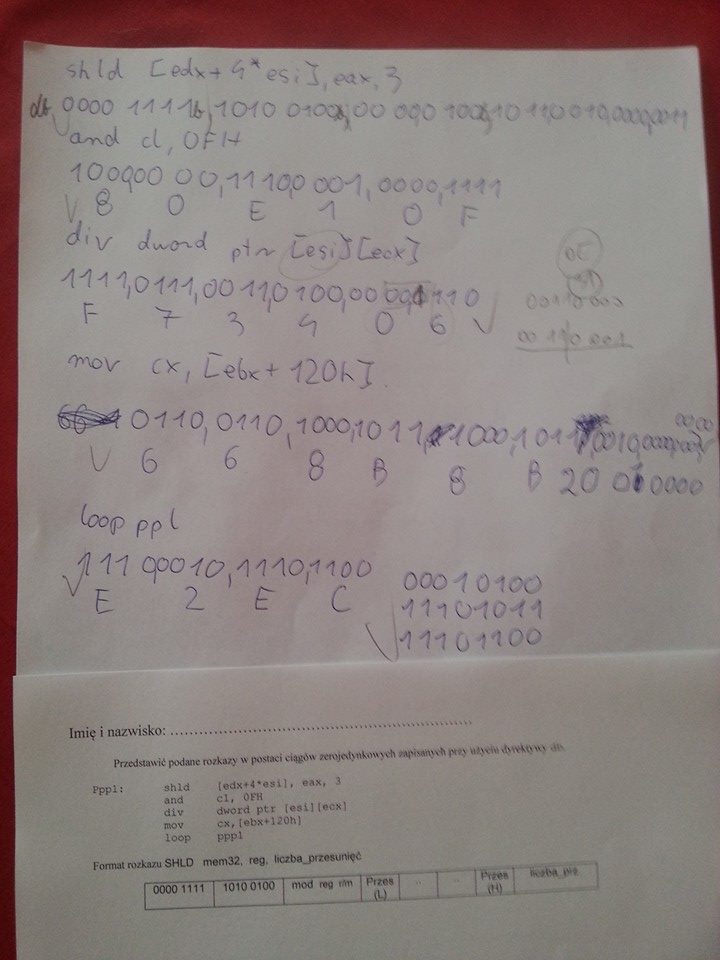 shld [edx+4*esi], eax, 3
db 0000 1111b, 1010 0100b, 00 000 100b, 10 110 010, 0000 0011
and cl, 0FH
100000 00, 11100 001, 0000 1111
8 0 E 1 0 F
div dword ptr [esi][ecx]
1111,0111,0011,0100,00 00 1 110
F 7 3 4 0 6
0E
31
00110000
00 110 001
mov cx, [ebx + 120h]
0110,0110,1000,1011, 1000,1011, 0010 0000
6 6 8 B 8 B 20 01 0000
loop ppl
1110 0010, 1110,1100
E 2 E C
00010100
11101011
11101100
Imię i nazwisko: ……………………………………………
Przedstawić podane rozkazy w postaci ciągów zerojedynkowych zapisanych przy użyciu dyrektywy db.
Pppl: shld [edx+4*esi], eax, 3
and cl, 0FH
div dword ptr [esi][ecx]
mov cx,[ebx+120h]
loop pppl
Format rozkazu SHLD mem32, reg, liczba_przesunięć
0000 1111 1010 0100 mod reg r/m Przes (L) .. .. Przes (H) liczba_prz